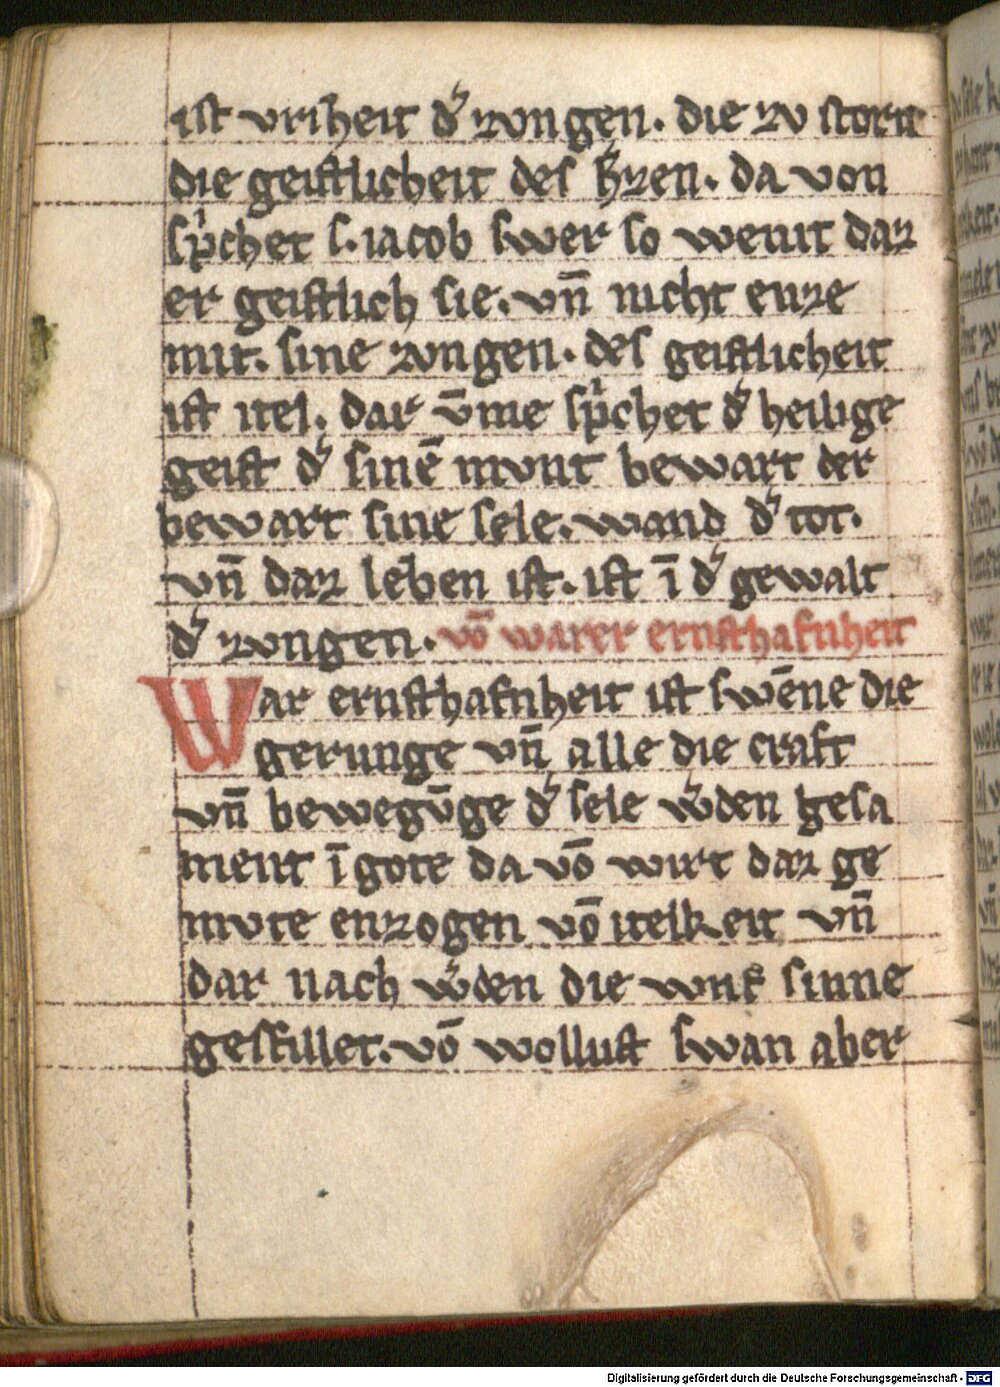 ist vriheit dʾ zvngen. die zv storit
die geistlicheit des hʾzen. da von
sp̾chet s. iacob swer so wenit daz
er geistlich sie. vn̄ nicht enze
mit. sine zvngen. des geistlicheit
ist itel. dar v̄me sp̾chet dʾ heilige
geist dʾ sinē mvnt bewart der
bewart sine sele. wand dʾ tot.
vn̄ daz leben ist. ist ī dʾ gewalt
dʾ zvngen. vō warer ernsthaftiheit
War ernsthaftiheit ist swēne die
gerunge vn̄ alle die craft
vn̄ bewegv̄ge dʾ sele wʾden gesa
ment ī gote da vō wirt daz ge
mvte enzogen vō itelkeit vn̄
dar nach wʾden die vmf sinne
gestillet. vō wollust swan aber
Digitalisierung gefördert durch die Deutsche Forschungsgemeinschaft - DFG